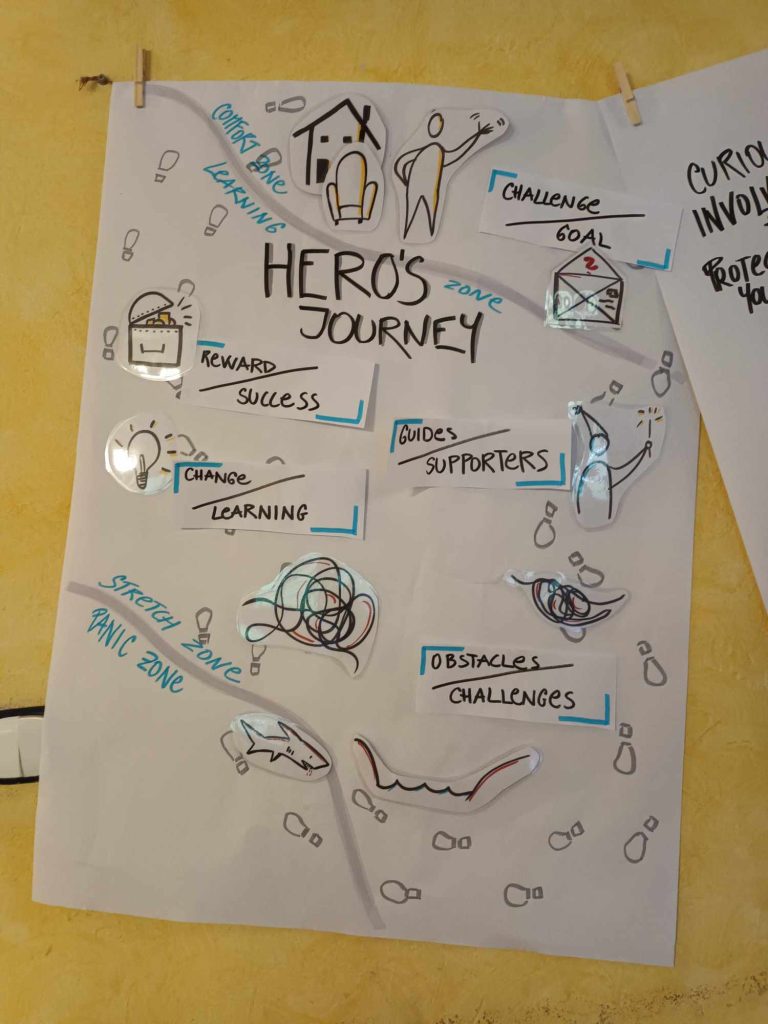 COMFORT ZONE
LEARNING
ZONE
HERO'S
JOURNEY
CHALLENGE
GOAL
?
REWARD
SUCCESS
GUIDES
SUPPORTERS
CHANGE
LEARNING
STRETCH ZONE
PANIC ZONE
OBSTACLES
CHALLENGES